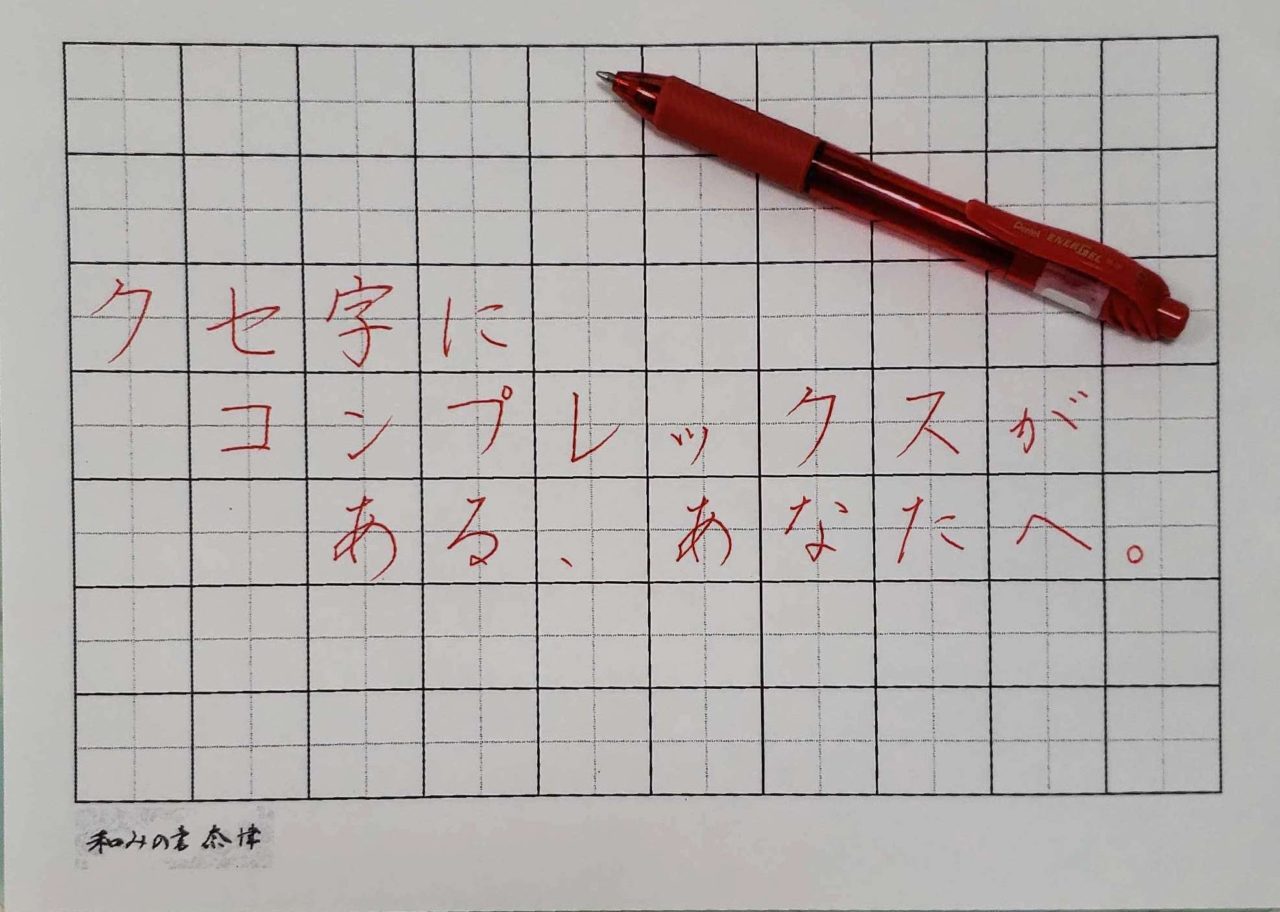 クセ字に
コンプレックスが
ある、あなたへ。
Pentel ENERGEL
和みの書 奈津